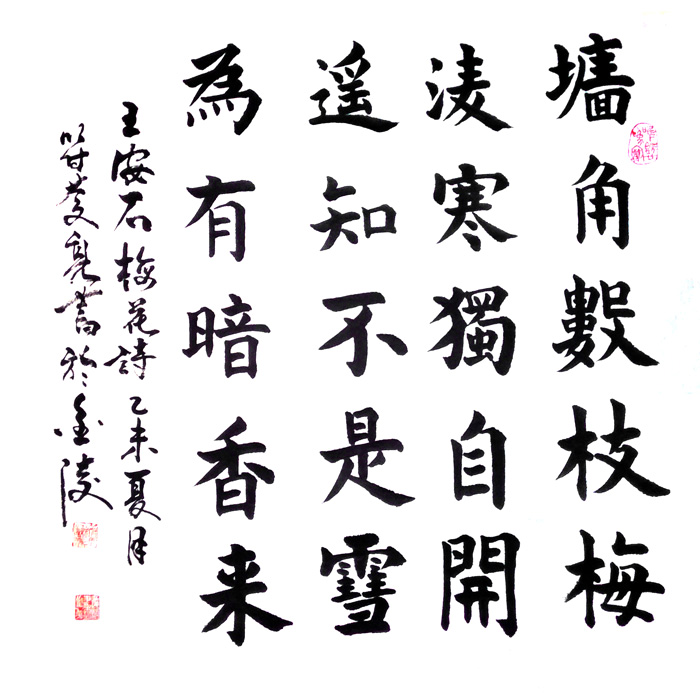 墻角數枝梅
凌寒獨自開
遥知不是雪
為有暗香来
王安石梅花詩乙未夏月
書於金陵